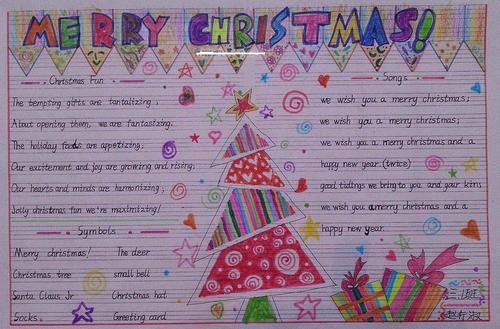 MERRY CHRISTMAS!
Christmas Fun
The tempting gifts are tantalizing;
About opening them, we are fantasizing.
The holiday foods are appetizing;
Our excitement and joy are growing and rising;
Our hearts and minds are harmonizing;
Jolly christmas fun we're maximizing!
Symbols
Merry christmas! The deer
Christmas tree small bell
Santa Claus Jr Christmas hat
Socks. Greeting card
Songs
we wish you a merry christmas;
we wish you a merry christmas;
we wish you a merry christmas and a
happy new year.(twice)
good tidings we bring to you and your kins
we wish you a merry christmas and a
happy new year.
三.班